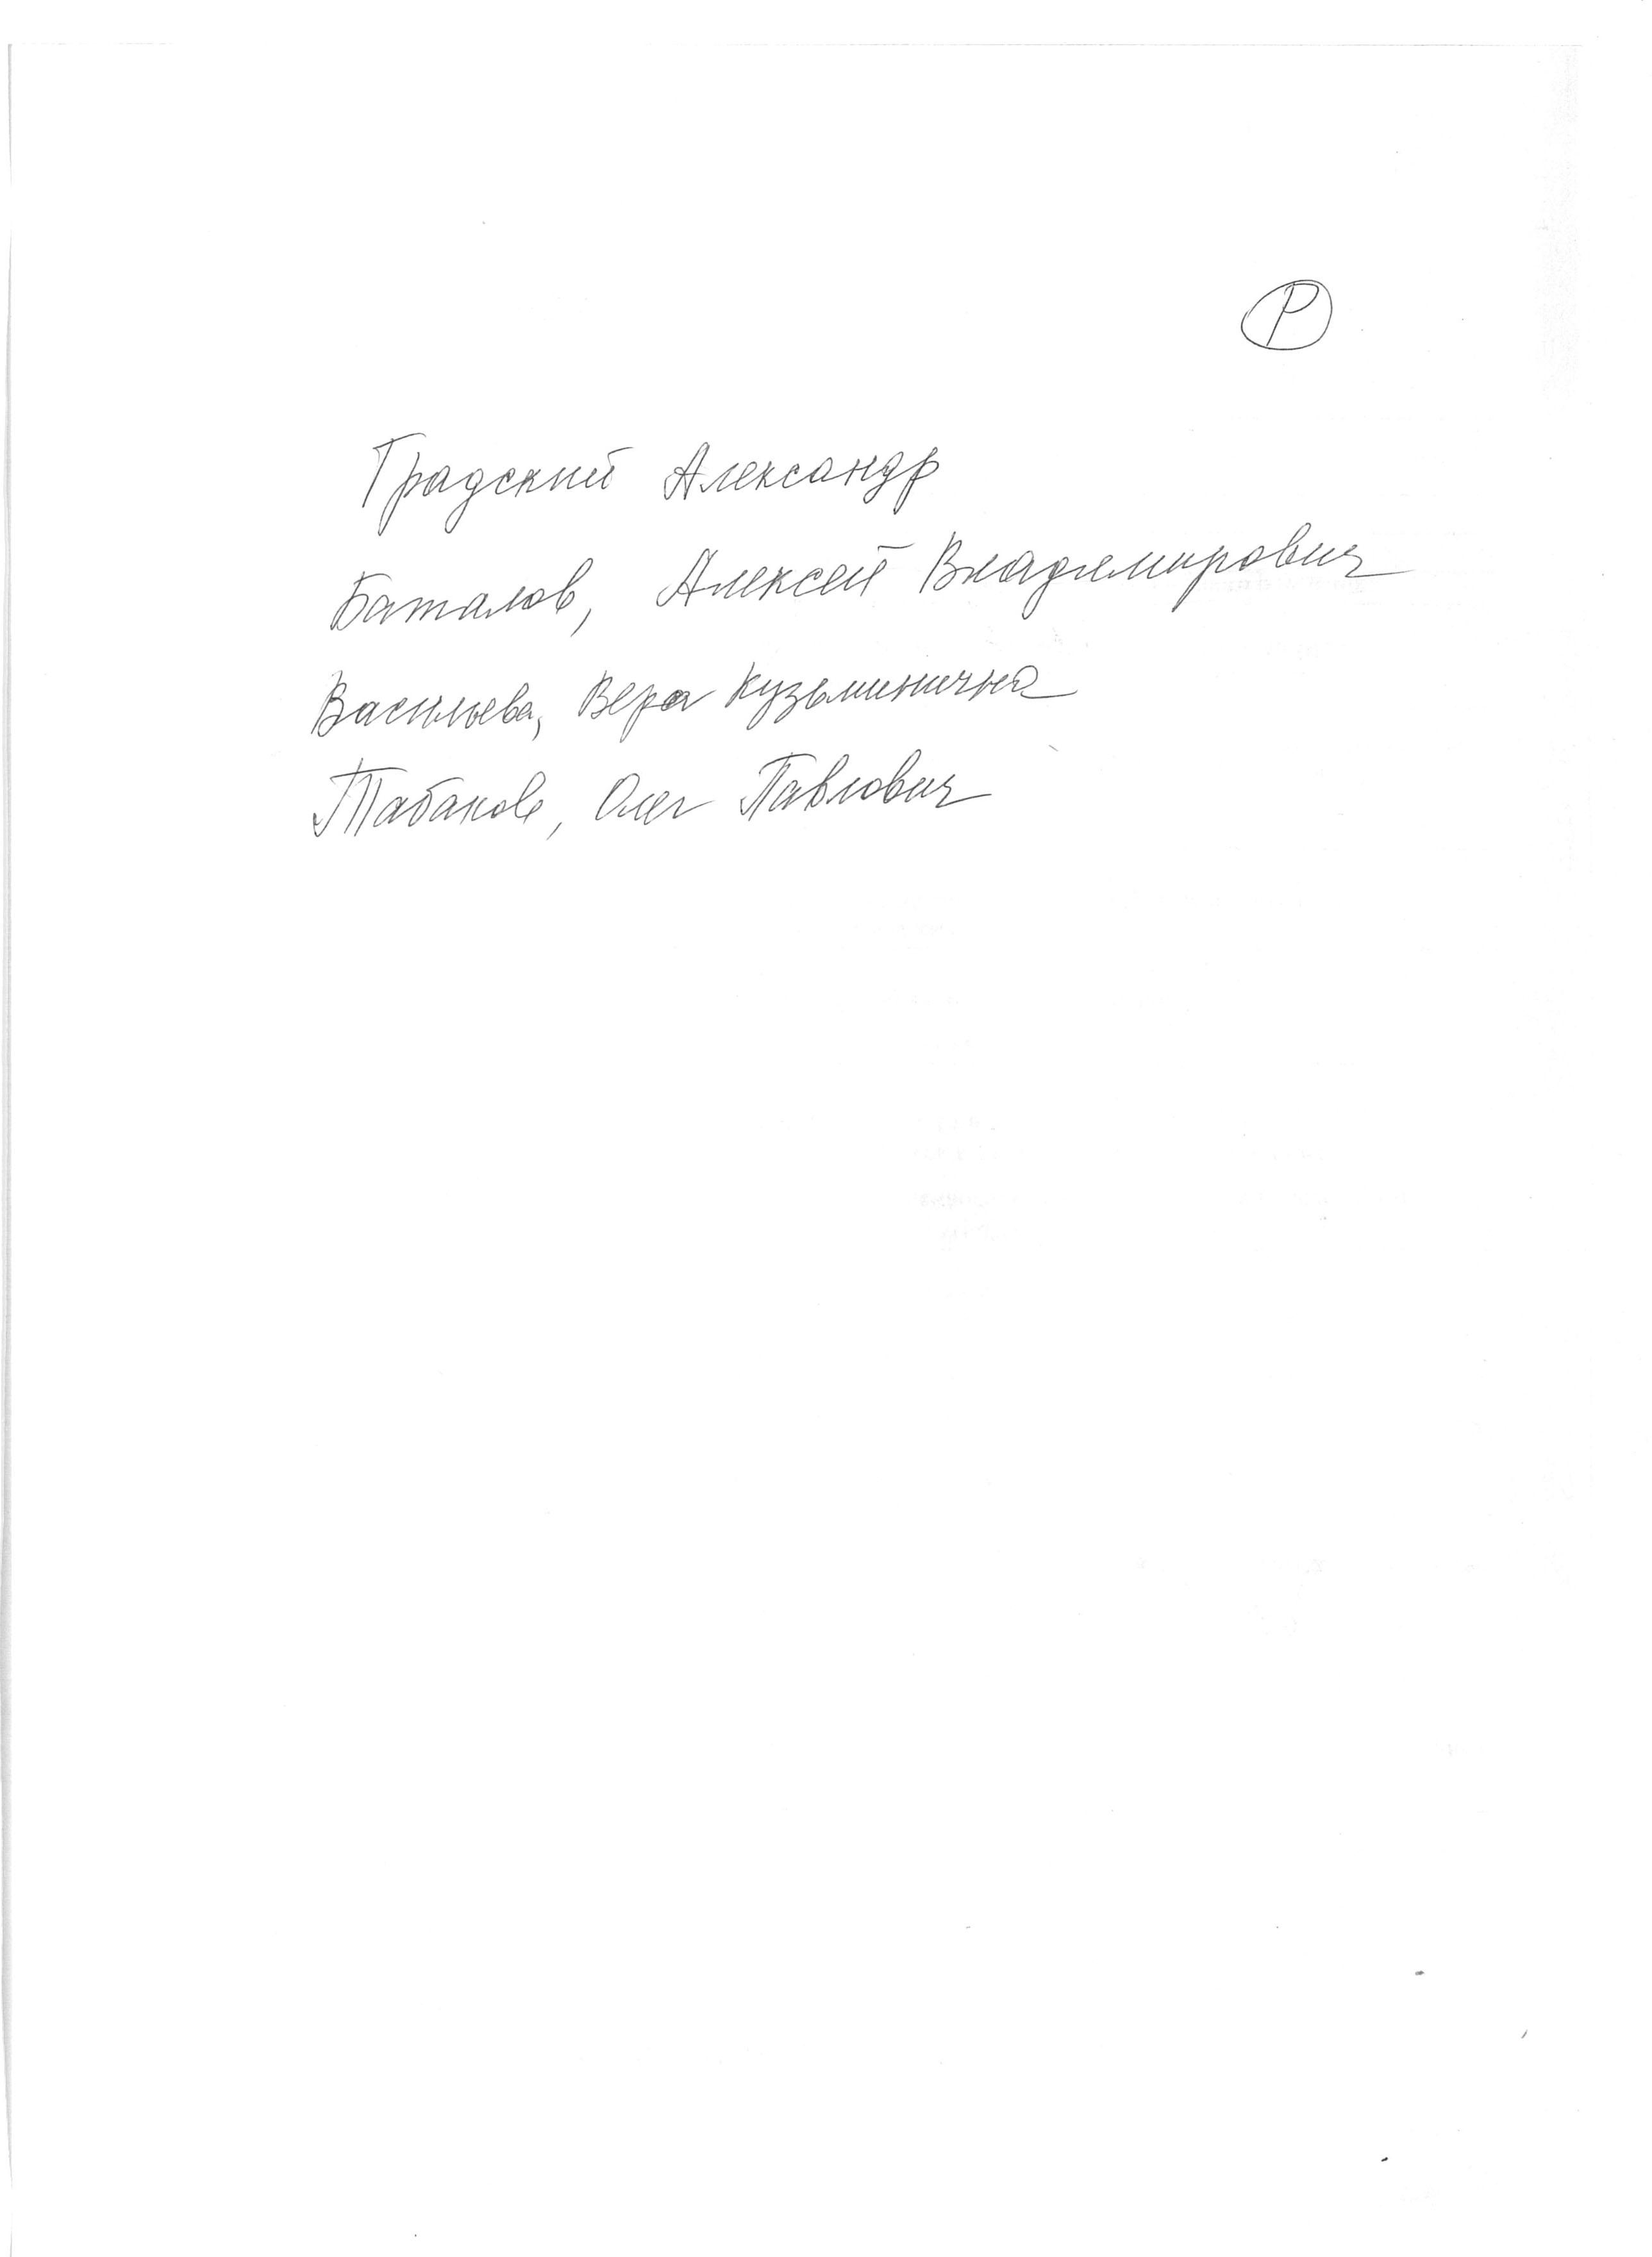 Р
Градский Александр
Баталов, Алексей Владимирович
Васильева, Вера Кузьминична
Табаков, Олег Павлович